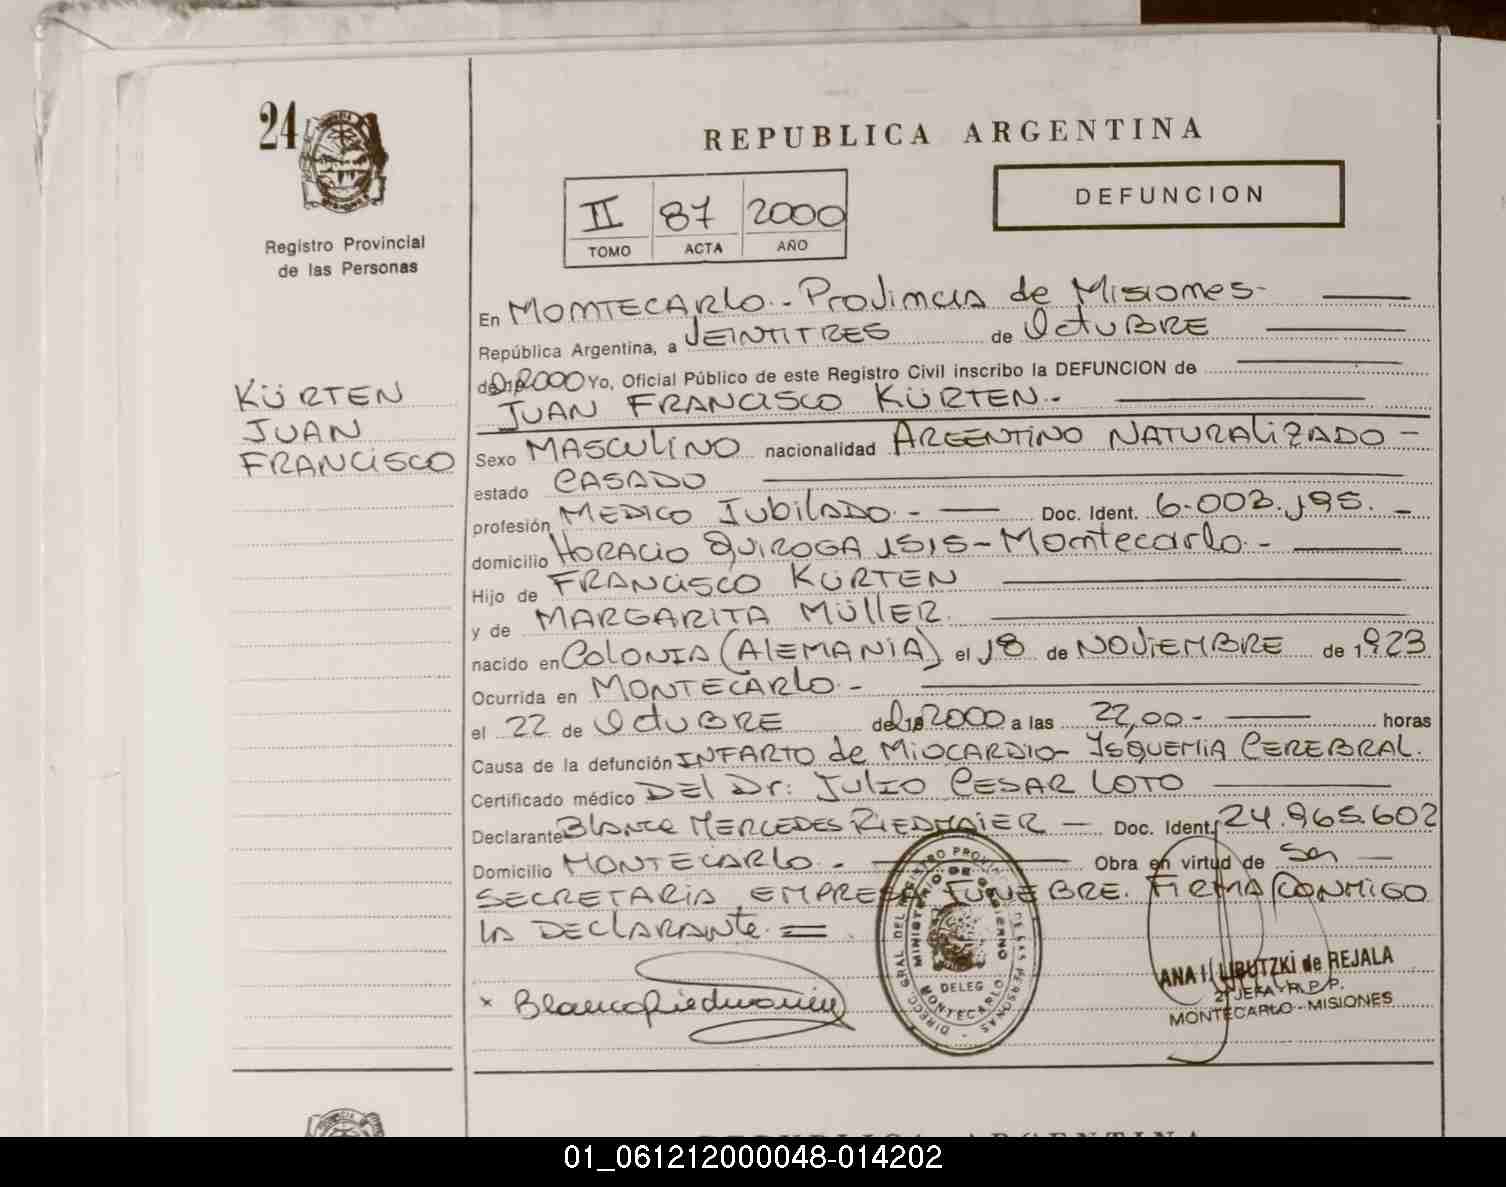 24
Registro Provincial
de las Personas
KÜRTEN
JUAN
FRANCISCO
REPUBLICA ARGENTINA
II 87 2000
TOMO ACTA AÑO
DEFUNCION
En MONTECARLO.- Provincia de Misiones-
República Argentina, a VEINTITRES de OctuBRE
de 2000 Yo, Oficial Público de este Registro Civil inscribo la DEFUNCION de
JUAN FRANCISCO KÜRTEN.-
Sexo MASCULINO nacionalidad ARGENTINO NATURALIZADO -
estado CASADO
profesión MEDICO JUBILADO.- Doc. Ident. 6.003.195.-
domicilio HORACIO QUIROGA 1515- Montecarlo.-
Hijo de FRANCISCO KÜRTEN
y de MARGARITA MÜLLER.
nacido en COLONIA (ALEMANIA) el 18 de NOVIEMBRE de 1.923
Ocurrida en MONTECARLO.-
el 22 de OctuBRE del 2000 a las 22,00.- horas
Causa de la defunción INFARTO de MIOCARDIO- ISQUEMIA CEREBRAL.
Certificado médico DEL Dr: JULIO CESAR LOTO
Declarante Blanca MERCEDES RIEDMAIER - Doc. Ident. 24.965.602
Domicilio MONTECARLO.- Obra en virtud de Ser
SECRETARIA EMPRESA FUNEBRE. FIRMA CONMIGO
LA DECLARANTE.=
x Blanca Riedmaier
DIRECC. GRAL DEL REGISTRO PROVIN. DE LAS PERSONAS
MINISTERIO DE GOBIERNO
DELEG
MONTECARLO
ANA I. LIBUTZKI de REJALA
2ª JEFA R. P. P.
MONTECARLO - MISIONES
REPUBLICA ARGENTINA
01_061212000048-014202